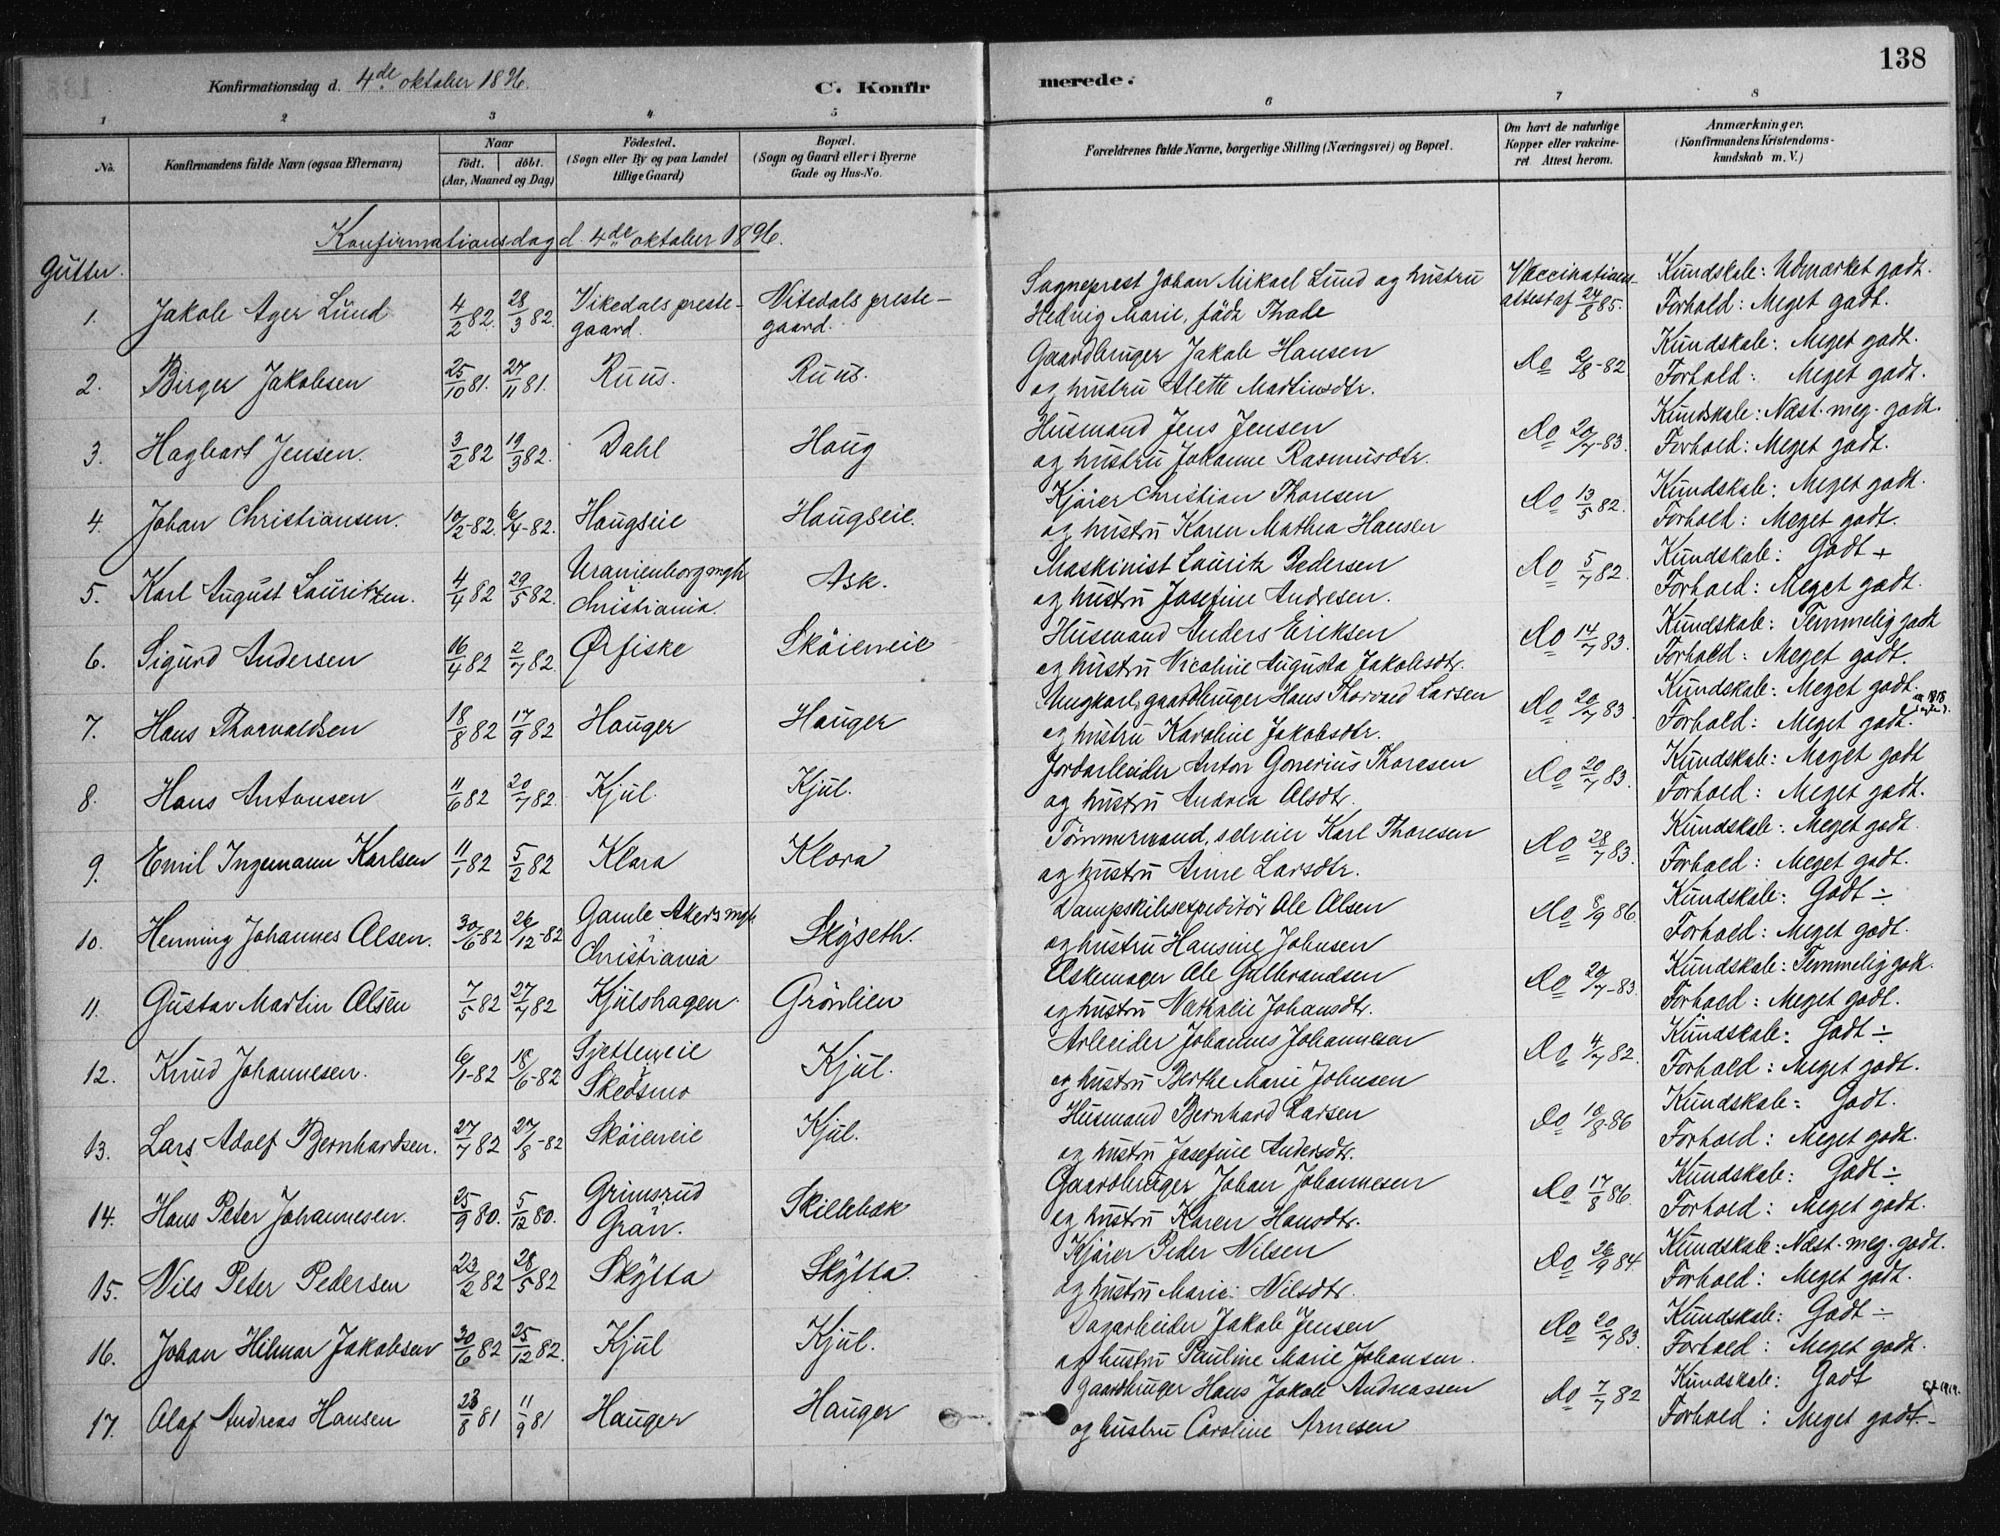 138
Konfirmationsdag d. 4de oktober 1896.
C. Konfirmerede.
1 2 3 4 5 6 7 8
No.
Konfirmandens fulde Navn (ogsaa Efternavn)
Naar
födt. döbt.
(Aar, Maaned og Dag)
Födested.
(Sogn eller By og paa Landet
tillige Gaard)
Bopæl.
(Sogn og Gaard eller i Byerne
Gade og Hus-No.
Forældrenes fulde Navne, borgerlige Stilling (Næringsvei) og Bopæl.
Om havt de naturlige
Kopper eller vakcine-
ret Attest herom.
Anmærkninger.
(Konfirmandens Kristendoms-
kundskab m. V.)
Konfirmationsdag d. 4de oktober 1896.
Gutter.
1. Jakob Ager Lund 4/2 82. 28/3 82. Vikedals preste-
gaard. Nitedals preste-
gaard. Sogneprest Johan Mikael Lund og hustru
Hedvig Marie, födt Thode Vaccinations-
attest af 24/8 85. Kundskab: Udmærket godt.
Forhold: Meget godt.
2. Birger Jakobsen 25/10 81. 27/11 81. Ruus. Ruus. Gaardbruger Jakob Hansen
og hustru Alette Martinsdtr. Do 2/8-82 Kundskab: Meget godt.
Forhold: Meget godt.
3. Hagbart Jensen. 3/2 82 19/3 82. Dahl Haug Husmand Jens Jensen
og hustru Johanne Rasmusdtr. Do 20/7-83. Kundskab: Næst. meg. godt.
Forhold: Meget godt.
4. Johan Christiansen. 10/2-82. 6/4-82. Haugseie Haugseie. Kjörer Christian Thoresen
og hustru Karen Mathea Hansen Do 13/5 82. Kundskab: Meget godt.
Forhold: Meget godt.
5. Karl August Lauritzen. 4/4 82 29/5 82. Uranienborg mgh
Christiania. Ask. Maskinist Lauritz Pedersen
og hustru Josefine Andresen. Do 5/7 82. Kundskab: Godt +
Forhold: Meget godt.
6. Sigurd Andersen 16/4 82 2/7 82. Ørfiske Sköieneie Husmand Anders Eriksen
og hustru Nicoline Augusta Jakobsdtr. Do 14/7 83. Kundskab: Temmelig godt
Forhold: Meget godt.
7. Hans Thorvaldsen 18/8 82 17/9 82 Hauger Hauger Ungkarl, gaardbruger Hans Thorvald Larsen
og hustru Karoline Jakobsdtr. Do 20/7 83. Kundskab: Meget godt.
Forhold: Meget godt.
8. Hans Antonsen 11/6 82 20/7 82. Kjul. Kjul. Jordarbeider Anton Gonerius Thoresen
og hustru Andrea Olsdtr. Do 20/7 83. Kundskab: Meget godt
Forhold: Meget godt.
9. Emil Ingemann Karlsen 11/1 82 5/2 82 Klora Klora Tömmermand, selveier Karl Thoresen
og hustru Anne Larsdtr. Do 28/7 83. Kundskab: Meget godt.
Forhold: Meget godt.
10. Henning Johannes Olsen. 30/6-82 26/12-82 Gamle Akers mgh
Christiania Skÿseth. Dampskibsexpeditör Ole Olsen
og hustru Hansine Johnsen Do 8/9 86. Kundskab: Godt ÷
Forhold: Meget godt.
11. Gustav Martin Olsen 7/5 82 27/7 82 Kjulshagen Grönlien Æskemager Ole Gulbrandsen
og hustru Nathalie Johansdtr. Do 20/7-83. Kundskab: Temmelig godt.
Forhold: Meget godt.
12. Knud Johannesen. 6/1-82 18/6-82 Gjetteneie
Skedsmo Kjul. Arbeider Johannes Johannesen
og hustru Berthe Marie Johnsen Do 4/7 82. Kundskab: Godt ÷
Forhold: Meget godt.
13. Lars Adolf Bernhardsen. 27/7 82 27/8-82 Sköieneie Kjul. Husmand Bernhard Larsen
og hustru Josefine Andersdtr. Do 10/8-86 Kundskab: Godt.
Forhold: Meget godt.
14. Hans Peter Johannesen. 25/9 80. 5/12 80. Grimsrud
Gran. Skillebæk Gaardbruger Johan Johannesen
og hustru Karen Hansdtr. Do 17/8 86. Kundskab: Godt ÷
Forhold: Meget godt.
15. Nils Peter Pedersen 23/2 82 28/5 82 Skÿtta Skÿtta. Kjörer Peder Nilsen
og hustru Marie Nilsdtr. Do 26/9 84. Kundskab: Næst. meg. godt.
Forhold: Meget godt.
16. Johan Hilmar Jakobsen 30/6 82 25/12 82. Kjul Kjul. Dagarbeider Jakob Jensen
og hustru Pauline Marie Johansen. Do 20/7 83. Kundskab: Godt ÷
Forhold: Meget godt.
17. Olaf Andreas Hansen 23/8 81 11/9 81 Hauger Hauger Gaardbruger Hans Jakob Andreassen
og hustru Caroline Arnesen Do 7/7 82 Kundskab: Godt
Forhold: Meget godt.